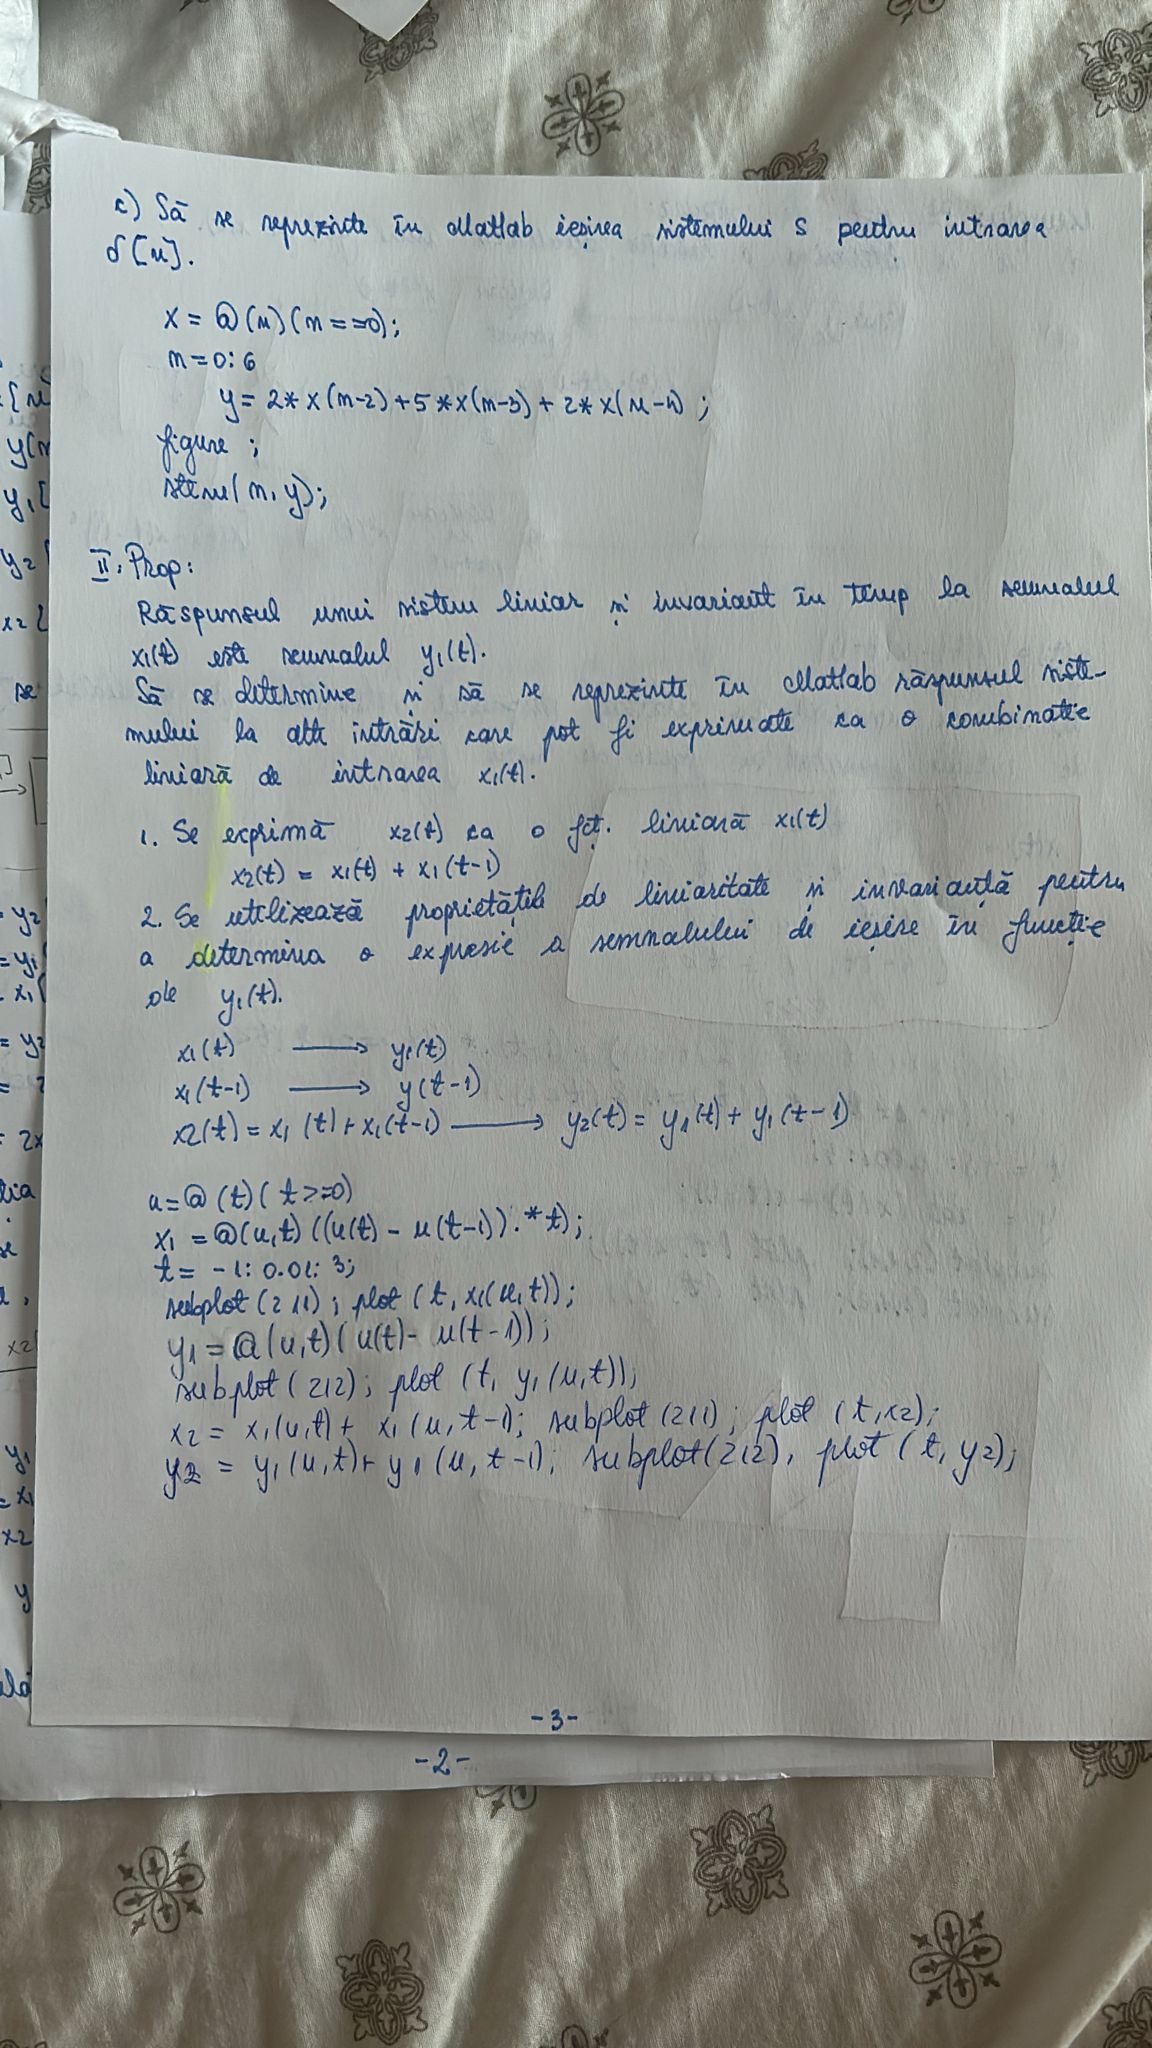 c) Să se reprezinte în Matlab ieșirea sistemului S pentru intrarea
δ[n].
x = @(n)(n==0);
n=0:6
y= 2*x(n-2)+5*x(n-3)+2*x(n-4);
figure ;
stem(n,y);
II. Prop:
Răspunsul unui sistem liniar și invariant în timp la semnalul
x1(t) este semnalul y1(t).
Să se determine și să se reprezinte în Matlab răspunsul siste-
mului la alte intrări care pot fi exprimate ca o combinație
liniară de intrarea x1(t).
1. Se exprimă x2(t) ca o fct. liniară x1(t)
x2(t) = x1(t) + x1(t-1)
2. Se utilizează proprietățile de liniaritate și invarianță pentru
a determina o expresie a semnalului de ieșire în funcție
de y1(t).
x1(t) → y1(t)
x1(t-1) → y(t-1)
x2(t) = x1(t)+x1(t-1) → y2(t) = y1(t) + y1(t-1)
u=@(t)(t>=0)
x1 =@(u,t)((u(t) - u(t-1)).*t);
t= -1:0.01:3;
subplot(211); plot(t,x1(u,t));
y1=@(u,t)(u(t)- u(t-1));
subplot(212); plot(t, y1(u,t));
x2= x1(u,t)+ x1(u,t-1); subplot(211); plot(t,x2);
y2 = y1(u,t)+y1(u,t-1); subplot(212), plot(t,y2);
-3-
-2-